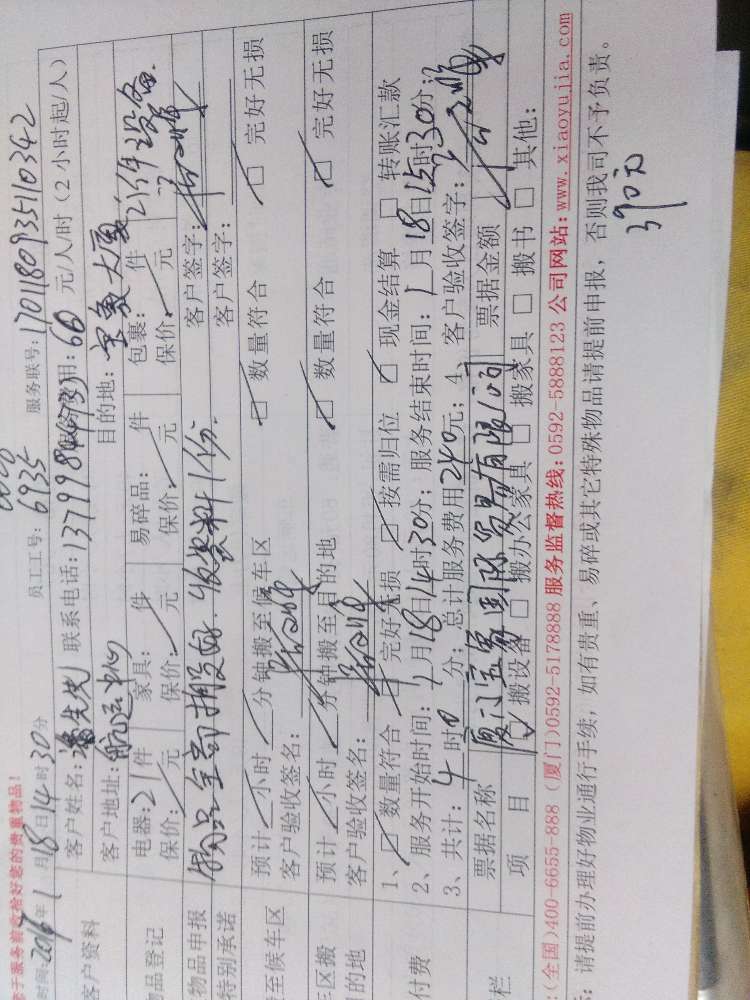 于服务前查检好您的贵重物品！
员工工号：6935 服务联号：170118093510342
时间：2016年1月18日14时30分
客户资料
客户姓名：潘先生 联系电话：费用：60 元/人/时（2小时起/人）
客户地址：航运中心 目的地：
物品登记
电器：21件 家具： 件 易碎品： 件 包裹： 件 21件设备
保价： 元 保价： 元 保价： 元 保价： 元
物品申报 物品全部 资料1份. 客户签字：
特别承诺 客户签字：
至候车区 预计 小时 分钟搬至候车区 数量符合 完好无损
客户验收签名：
车区搬 预计 小时 分钟搬至目的地 数量符合 完好无损
目的地 客户验收签名：
付费
1、数量符合 完好无损 按需归位 现金结算 转账汇款
2、服务开始时间：1月18日14时30分；服务结束时间：1月18日15时30分；
3、共计：4时0分；总计服务费用240元；4、客户验收签字：
栏
票据名称 厦门宝 国际贸易有限公司 票据金额
项目 搬设备 搬办公家具 搬家具 搬书 其他：
：(全国)400-6655-888 (厦门)0592-5178888 服务监督热线：0592-5888123 公司网站：www.xiaoyujia.com
：请提前办理好物业通行手续，如有贵重、易碎或其它特殊物品请提前申报，否则我司不予负责。
390元